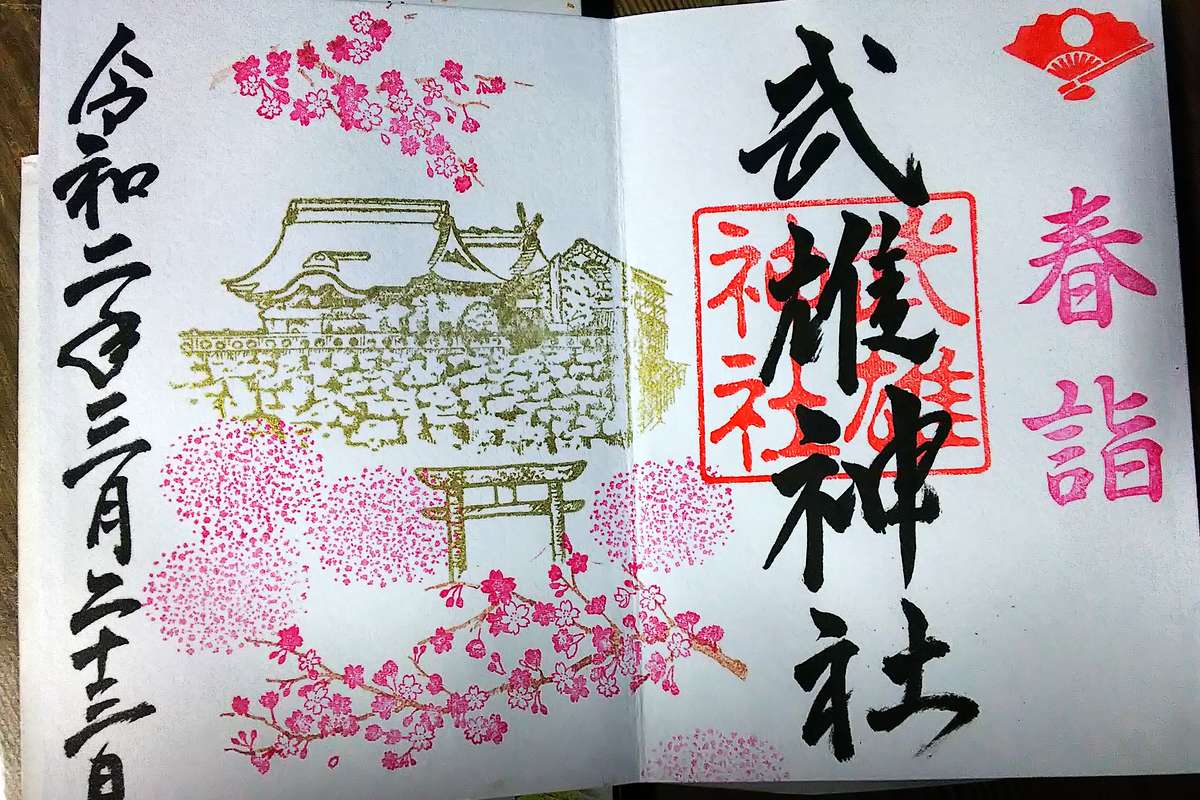 春詣
武雄神社
武雄
神社
令和二年三月二十三日